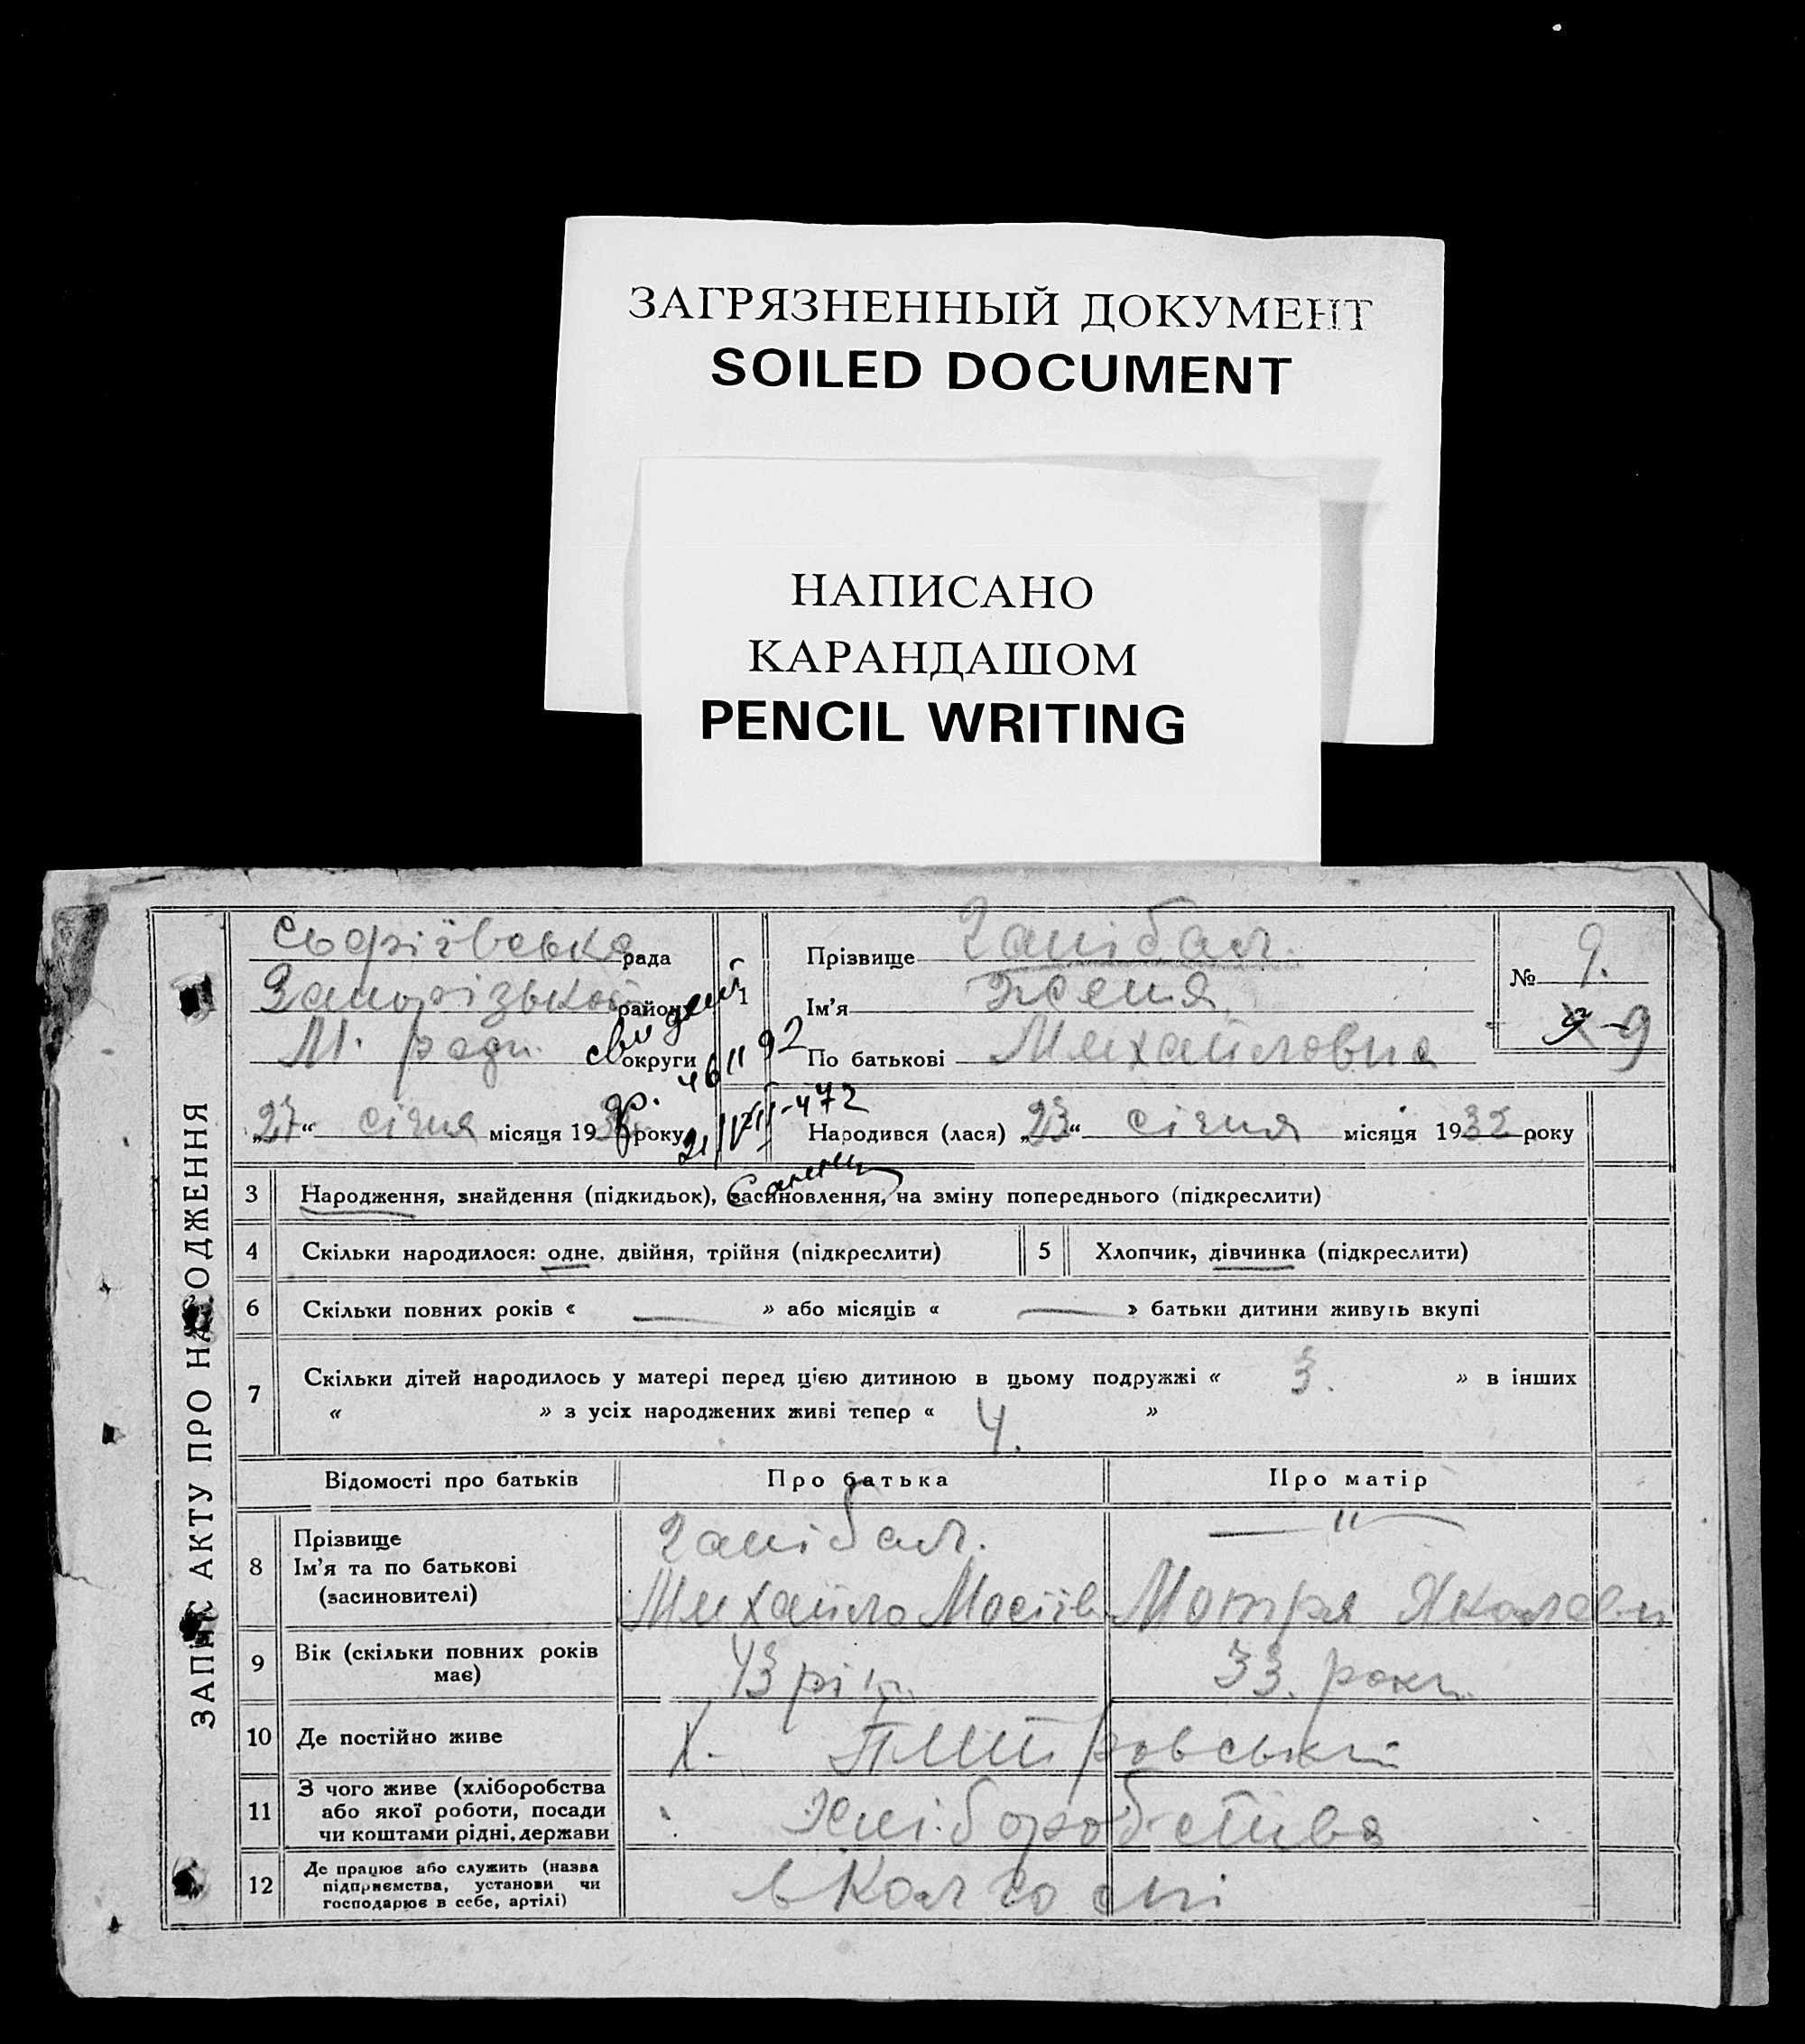 ЗАГРЯЗНЕННЫЙ ДОКУМЕНТ
SOILED DOCUMENT
НАПИСАНО
КАРАНДАШОМ
PENCIL WRITING
ЗАПИС АКТУ ПРО НАРОДЖЕННЯ
Софіївська рада
Запорізької району
М. ради округи
„27“ січня місяця 1932 року
1
Прізвище Ганібал.
Ім'я Женя
По батькові Михайловна
№ 9.
9 - 9
Народився (лася) „23“ січня місяця 1932 року
3 Народження, знайдення (підкидьок), засиновлення, на зміну попереднього (підкреслити)
4 Скільки народилося: одне, двійня, трійня (підкреслити) 5 Хлопчик, дівчинка (підкреслити)
6 Скільки повних років « — » або місяців « — » батьки дитини живуть вкупі
7 Скільки дітей народилось у матері перед цією дитиною в цьому подружжі « 3. » в інших
« » з усіх народжених живі тепер « 4. »
Відомості про батьків Про батька Про матір
8 Прізвище Ганібал. — " —
Ім'я та по батькові
(засиновителі) Михайло Мосіїв Мотря Яковлевн
9 Вік (скільки повних років має) 43 рік. 33. роки.
10 Де постійно живе Х. Дмитровський
11 З чого живе (хліборобства
або якої роботи, посади
чи коштами рідні, держави Хліборобства
12 Де працює або служить (назва
підприємства, установи чи
господарює в себе, артілі) в Колгоспі